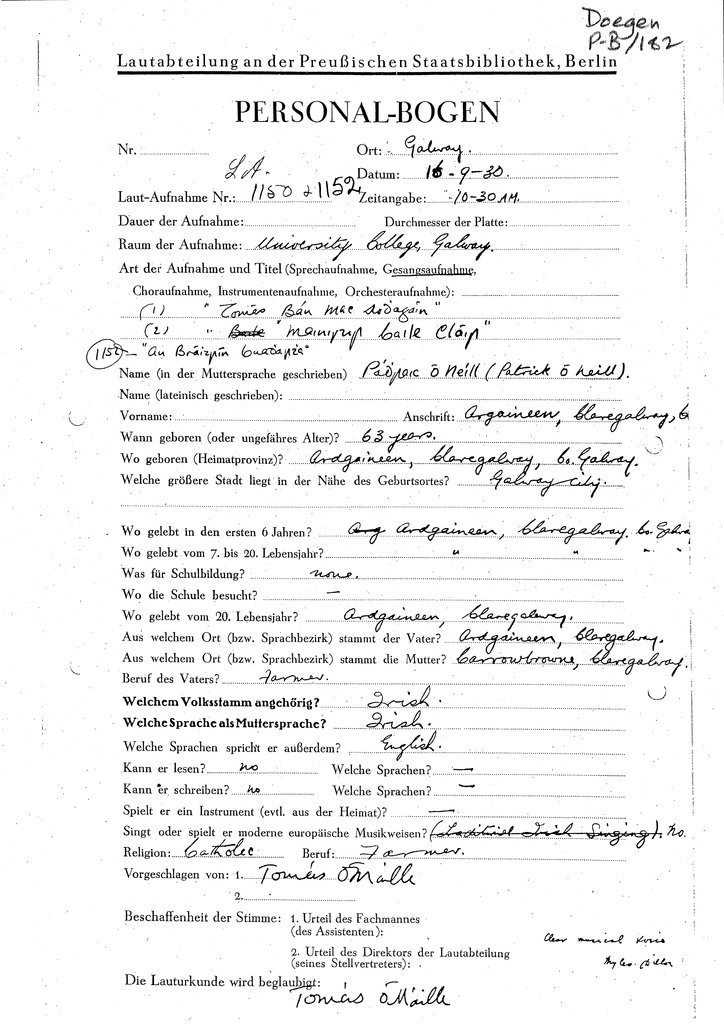 Doegen
P-B/182
Lautabteilung an der Preußischen Staatsbibliothek, Berlin
PERSONAL-BOGEN
Nr. Ort: Galway.
L.A. Datum: 16-9-30.
Laut-Aufnahme Nr.: 1150 & 1152 Zeitangabe: 10-30 AM.
Dauer der Aufnahme: Durchmesser der Platte:
Raum der Aufnahme: University College, Galway.
Art der Aufnahme und Titel (Sprechaufnahme, Gesangsaufnahme,
Choraufnahme, Instrumentenaufnahme, Orchesteraufnahme):
(1) "Tomás Bán Mac
(2) " Baile Cláir"
1152 – "An
Name (in der Muttersprache geschrieben) Pádraic Ó Neill (Patrick Ó Neill).
Name (lateinisch geschrieben):
Vorname: Anschrift: Argaineen, Claregalway, G
Wann geboren (oder ungefähres Alter)? 63 years.
Wo geboren (Heimatprovinz)? Ardgaineen, Claregalway, Co. Galway.
Welche größere Stadt liegt in der Nähe des Geburtsortes? Galway City.
Wo gelebt in den ersten 6 Jahren? Arg Ardgaineen, Claregalway. Co. Galwa
Wo gelebt vom 7. bis 20. Lebensjahr? " " " "
Was für Schulbildung? none.
Wo die Schule besucht? —
Wo gelebt vom 20. Lebensjahr? Ardgaineen, Claregalway.
Aus welchem Ort (bzw. Sprachbezirk) stammt der Vater? Ardgaineen, Claregalway.
Aus welchem Ort (bzw. Sprachbezirk) stammt die Mutter? Carrowbrowne, Claregalway.
Beruf des Vaters? Farmer.
Welchem Volksstamm angehörig? Irish.
Welche Sprache als Muttersprache? Irish.
Welche Sprachen spricht er außerdem? English.
Kann er lesen? no Welche Sprachen? —
Kann er schreiben? no Welche Sprachen? —
Spielt er ein Instrument (evtl. aus der Heimat)? —
Singt oder spielt er moderne europäische Musikweisen? (traditional Irish Singing). No.
Religion: Catholic Beruf: Farmer.
Vorgeschlagen von: 1. Tomás Ó Máille
2.
Beschaffenheit der Stimme: 1. Urteil des Fachmannes
(des Assistenten):
Clear musical voice
2. Urteil des Direktors der Lautabteilung
(seines Stellvertreters):
Myles Dillon
Die Lauturkunde wird beglaubigt:
Tomás Ó Máille